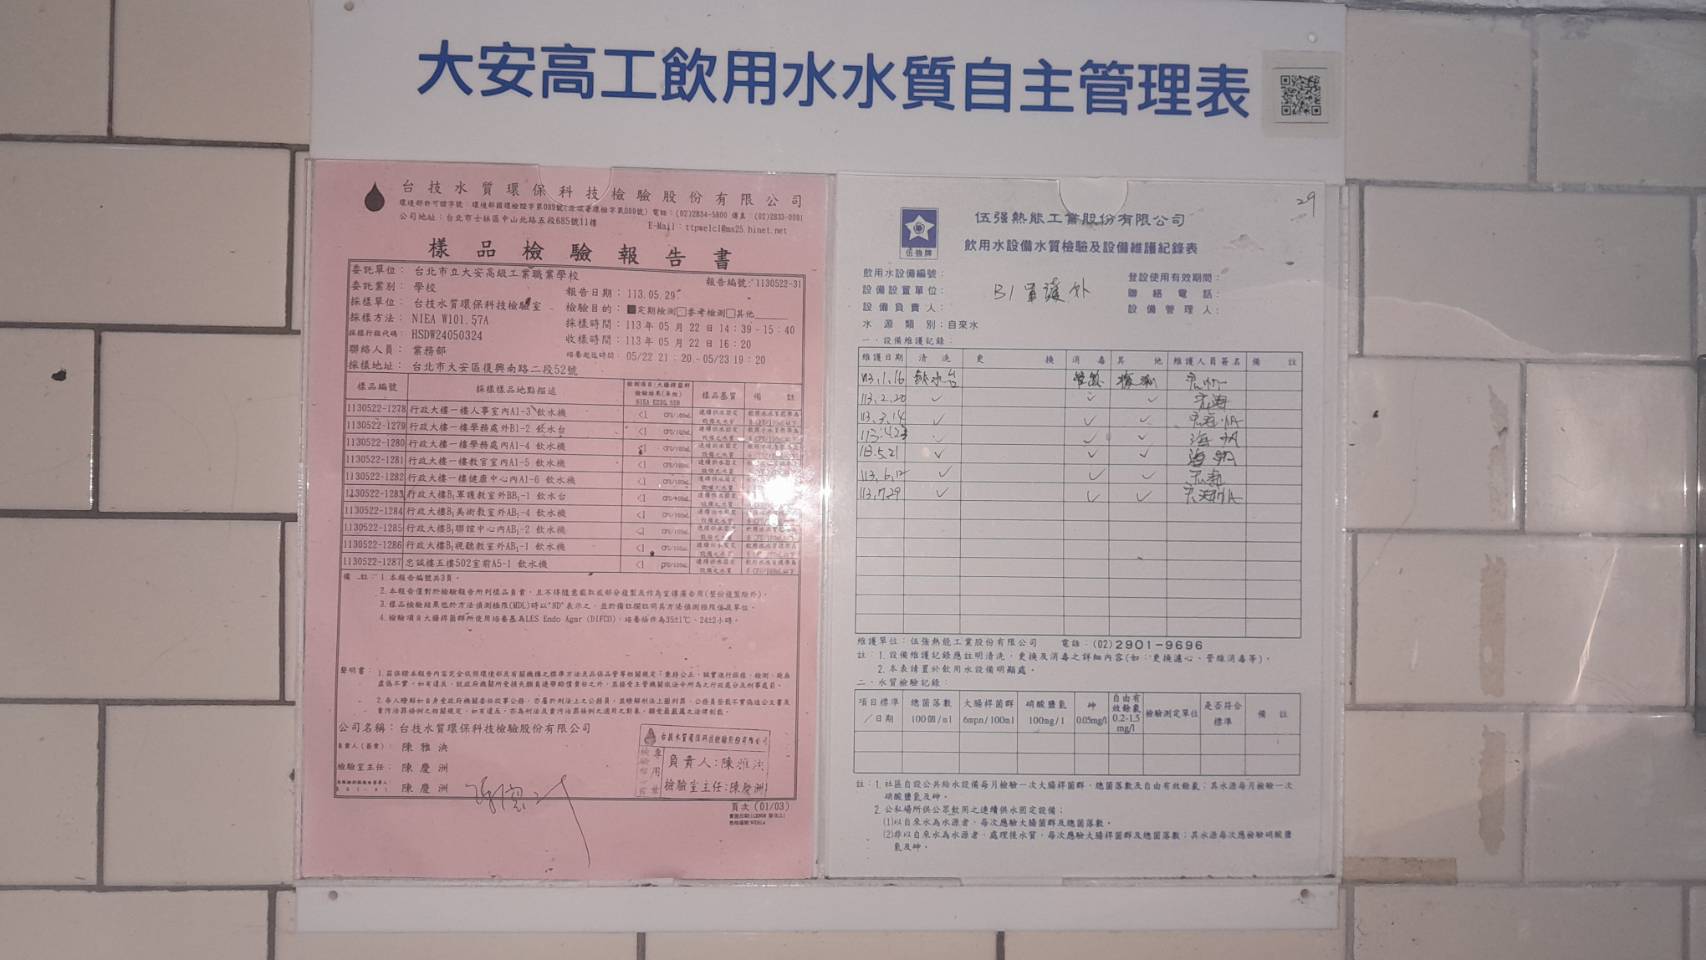 大安高工飲用水水質自主管理表
台技水質環保科技檢驗股份有限公司
公司地址：台北市士林區中山北路五段685號11樓
E-Mail：ttpwelcl@ms25.hinet.net
樣品檢驗報告書
委託單位：台北市立大安高級工業職業學校
報告編號：1130522-31
委託業別：學校
報告日期：113.05.29
採樣單位：台技水質環保科技檢驗室
檢驗目的：■定期檢測□參考檢測□其他
採樣方法：NIEA W101.57A
採樣時間：113年05月22日14:39-15:40
採樣行程代碼：HSDW24050324
收樣時間：113年05月22日16:20
聯絡人員：業務部
培養起迄時間：05/22 21:20-05/23 19:20
採樣地址：台北市大安區復興南路二段52號
樣品編號 採樣樣品地點描述 樣品基質 備註
1130522-1278 行政大樓一樓人事室內A1-3 飲水機 <1
1130522-1279 行政大樓一樓學務處外B1-2 飲水台 <1
1130522-1280 行政大樓一樓學務處內A1-4 飲水機 <1
1130522-1281 行政大樓一樓教官室內A1-5 飲水機 <1
1130522-1282 行政大樓一樓健康中心內A1-6 飲水機 <1
1130522-1283 行政大樓B1軍護教室外BB1-1 飲水台 <1
1130522-1284 行政大樓B1美術教室外AB1-4 飲水機 <1
1130522-1285 行政大樓B1聯誼中心內AB1-2 飲水機 <1
1130522-1286 行政大樓B1視聽教室外AB1-1 飲水機 <1
1130522-1287 忠誠樓五樓502室前A5-1 飲水機 <1
備註：1.本報告編號共3頁。
2.本報告僅對於檢驗報告所列樣品負責，且不得隨意截取或部分複製及作為宣傳廣告用(整份複製除外)。
3.樣品檢驗結果低於方法偵測極限(MDL)時以"ND"表示之，並於備註欄註明其方法偵測極限值及單位。
4.檢驗項目大腸桿菌群所使用培養基為LES Endo Agar (DIFCO)，培養條件為35±1℃、24±2小時。
聲明書：
公司名稱：台技水質環保科技檢驗股份有限公司
負責人(簽章)：陳雅泱
檢驗室主任：陳慶洲
陳慶洲
台技水質環保科技檢驗股份有限公司
負責人：陳雅泱
檢驗室主任：陳慶洲
頁次(01/03)
29
伍強牌
伍强熱能工業股份有限公司
飲用水設備水質檢驗及設備維護紀錄表
飲用水設備編號：
登設使用有效期間：
設備設置單位：B1軍護外
聯絡電話：
設備負責人：
設備管理人：
水源類別：自來水
一、設備維護記錄：
維護日期 清洗 更換 消毒 其他 維護人員簽名 備註
113.1.16 飲水台
113.2.20 ✓ ✓ ✓
113.3.14 ✓ ✓
113.4.23 ✓ ✓
113.5.21 ✓ ✓ ✓
113.6.12 ✓ ✓ ✓
113.7.29 ✓ ✓ ✓
維護單位：伍强熱能工業股份有限公司 電話：(02)2901-9696
註：1.設備維護記錄應註明清洗、更換及消毒之詳細內容(如：更換濾心、管線消毒等)。
2.本表請置於飲用水設備明顯處。
二、水質檢驗記錄：
項目標準/日期 總菌落數100個/ml 大腸桿菌群6mpn/100ml 硝酸鹽氮100mg/l 砷0.05mg/l 自由有效餘氯0.2-1.5mg/l 檢驗測定單位 是否符合標準 備註
註：1.社區自設公共給水設備每月檢驗一次大腸桿菌群、總菌落數及自由有效餘氯；其水源每月檢驗一次
硝酸鹽氮及砷。
2.公私場所供公眾飲用之連續供水固定設備：
(1)以自來水為水源者，每次應驗大腸菌群及總菌落數。
(2)非以自來水為水源者，處理後水質，每次應驗大腸桿菌群及總菌落數；其水源每次應檢驗硝酸鹽
氮及砷。